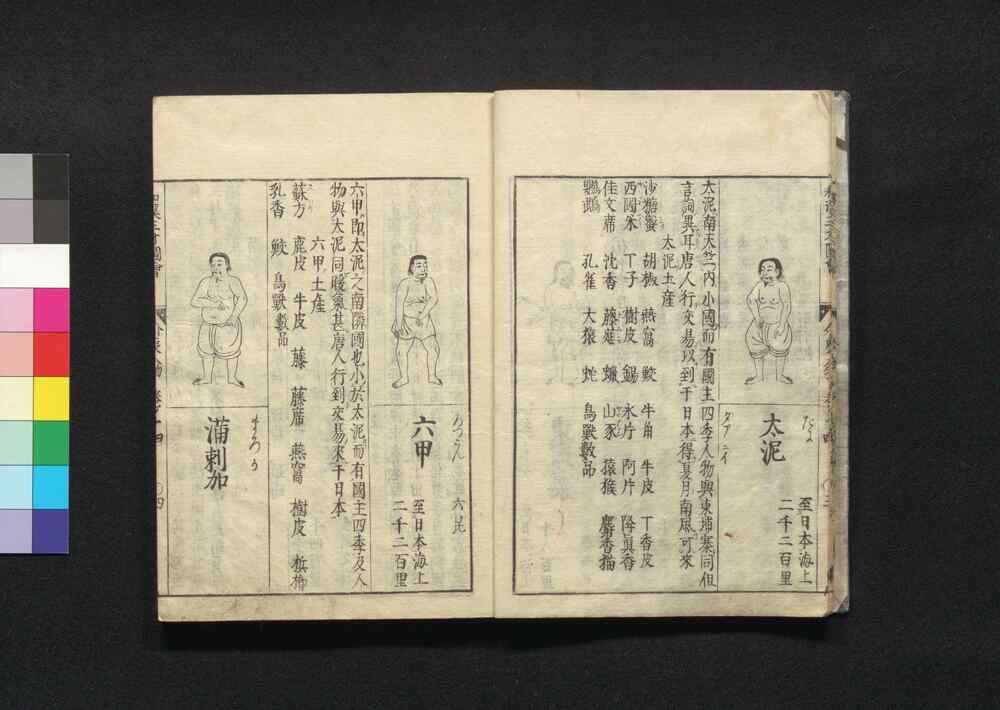 太泥
至日本海上
二千二百里
太泥南天竺內小國而有國主四季人物與東埔寨同但
言詞異耳唐人行交易以到于日本得夏月南風可來
太泥土産
沙糖蜜 胡椒 燕窩 鮫 牛角 牛皮 丁香皮
西國米 丁子 樹皮 錫 氷片 阿片 降眞香
佳文席 沈香 藤莚 蠟 山豕 猿猴 麝香猫
鸚鵡 孔雀 大猿 蛇 鳥獸數品
六甲
六昆
至日本海上
二千二百里
六甲即太泥之南隣國也小於太泥而有國主四季及人
物與太泥同暖氣甚唐人行到交易來于日本
六甲土産
蘇方 鹿皮 牛皮 藤 藤席 燕窩 樹皮 檳榔
乳香 鮫 鳥獸數品
滿剌加